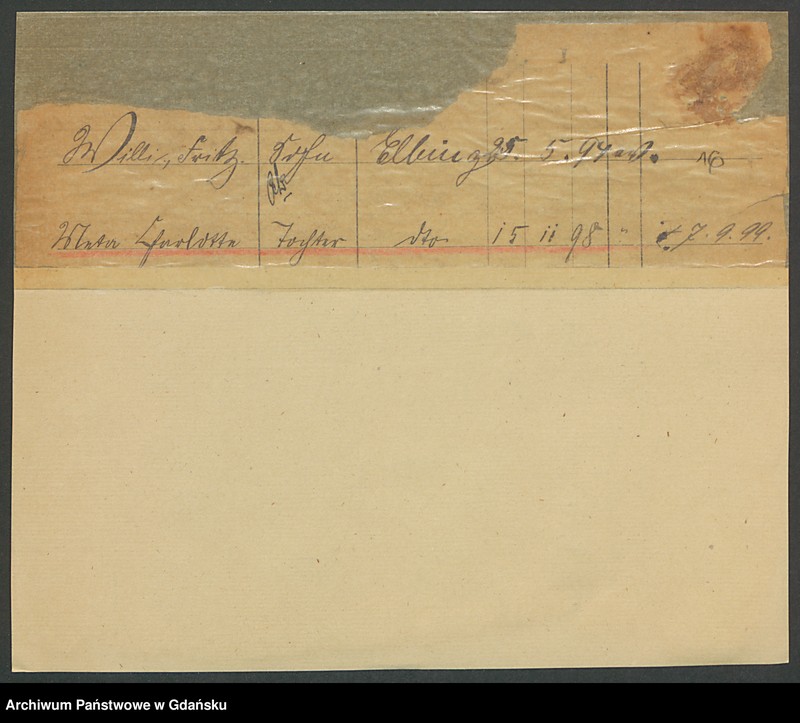 Willi, Fritz. Sohn Elbing 25. 5. 97 ev.
Meta Charlotte Tochter dto 15 11 98 " † 7. 9. 99.
Archiwum Państwowe w Gdańsku